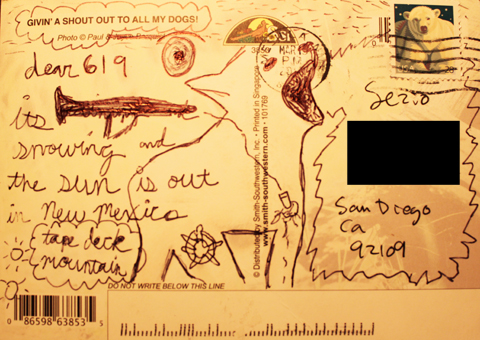 GIVIN' A SHOUT OUT TO ALL MY DOGS!
dear 619
its
snowing and
the sun is out
in New Mexico
tape deck
mountain
Servo
San Diego
Ca
92109
© Distributed by Smith-Southwestern, Inc. • Printed in Singapore • 101769
www.smith-southwestern.com
DO NOT WRITE BELOW THIS LINE
0 86598 63853 5